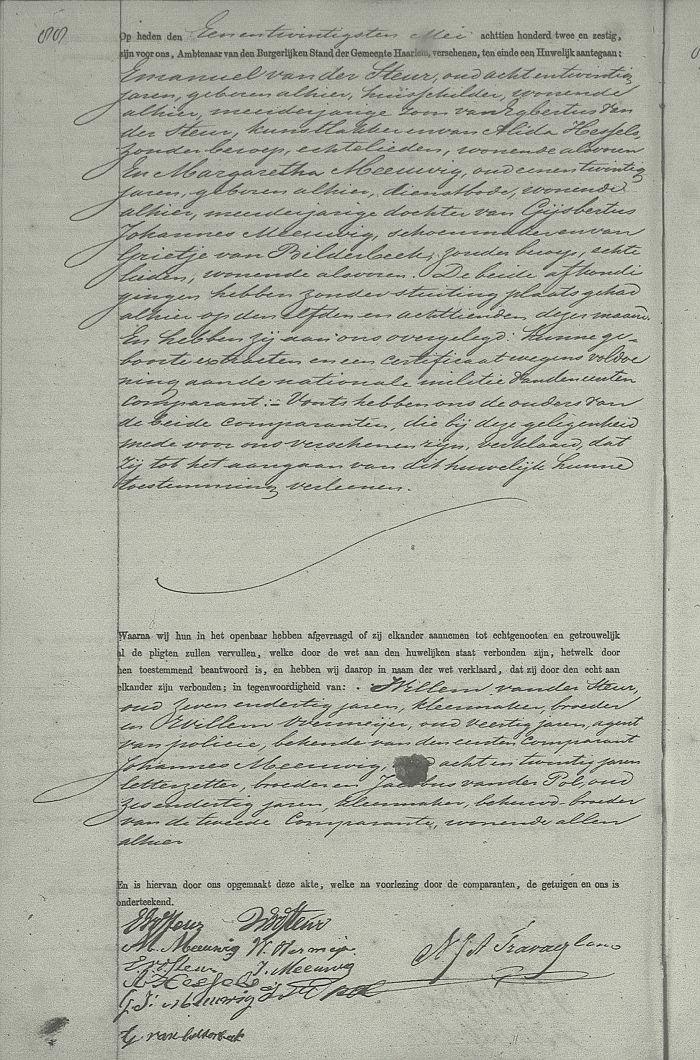 Op heden den Eenentwintigsten Mei achttien honderd twee en zestig,
zijn voor ons, Ambtenaar van den Burgerlijken Stand der Gemeente Haarlem, verschenen, ten einde een Huwelijk aantegaan:
Emanuel van der Steur, oud acht en twintig
jaren, geboren alhier, huisschilder, wonende
alhier, meerderjarige zoon van Egbertus van
der Steur, kunstlakker en van Alida Hessels,
zonder beroep, echtelieden, wonende alsvoren
En Margaretha Meeuwig, oud een en twintig
jaren, geboren alhier, dienstbode, wonende
alhier, meerderjarige dochter van Gijsbertus
Johannes Meeuwig, schoenmaker en van
Grietje van Bilderbeek, zonder beroep, echte
lieden, wonende alsvoren. De beide afkondi
gingen hebben zonder stuiting plaats gehad
alhier op den elfden en achttienden dezer maand.
En hebben zij aan ons overgelegd: hunne ge-
boorte extracten en een certificaat wegens voldoe
ning aan de nationale militie van den eersten
comparant. – Voorts hebben ons de ouders van
de beide comparanten, die bij deze gelegenheid
mede voor ons verschenen zijn, verklaard, dat
zij tot het aangaan van dit huwelijk hunne
toestemming verleenen.
Waarna wij hun in het openbaar hebben afgevraagd of zij elkander aannemen tot echtgenooten en getrouwelijk
al de pligten zullen vervullen, welke door de wet aan den huwelijken staat verbonden zijn, hetwelk door
hen toestemmend beantwoord is, en hebben wij daarop in naam der wet verklaard, dat zij door den echt aan
elkander zijn verbonden; in tegenwoordigheid van: Willem van der Steur,
oud zeven en dertig jaren, kleermaker, broeder
en Willem Overmeijer, oud veertig jaren, agent
van policie, bekende van den eersten Comparant
Johannes Meeuwig, acht en twintig jaren
letterzetter, broeder en Jacobus van der Pol, oud
zes en dertig jaren, kleermaker, behuwd broeder
van de tweede Comparante, wonende allen
alhier
En is hiervan door ons opgemaakt deze akte, welke na voorlezing door de comparanten, de getuigen en ons is
onderteekend.
M. Meeuwig
J. Meeuwig
A Hessels
G. van bilderbeek